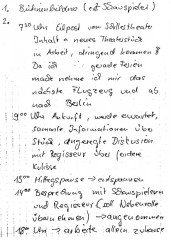 1. Bühnenbildner (evt Schauspieler)
2.
7 30 Uhr Eilpost vom Schillertheater
Inhalt = neues Theaterstück
in Arbeit, dringend kommen!
Da ich gerade Ferien
mache nehme ich mir das
nächste Flugzeug und ab
nach Berlin
9 00 Uhr Ankunft, werde erwartet,
sammle Informationen über
Stück, angeregte Diskusion
mit Regisseur über
Kulisse
15 00 Mittagspause → entspannen
16 00 Besprechung mit Schauspielern
und Regisseur (soll Nebenrolle
übernehmen) → angenommen
18 00 Uhr → arbeite allein zuhause